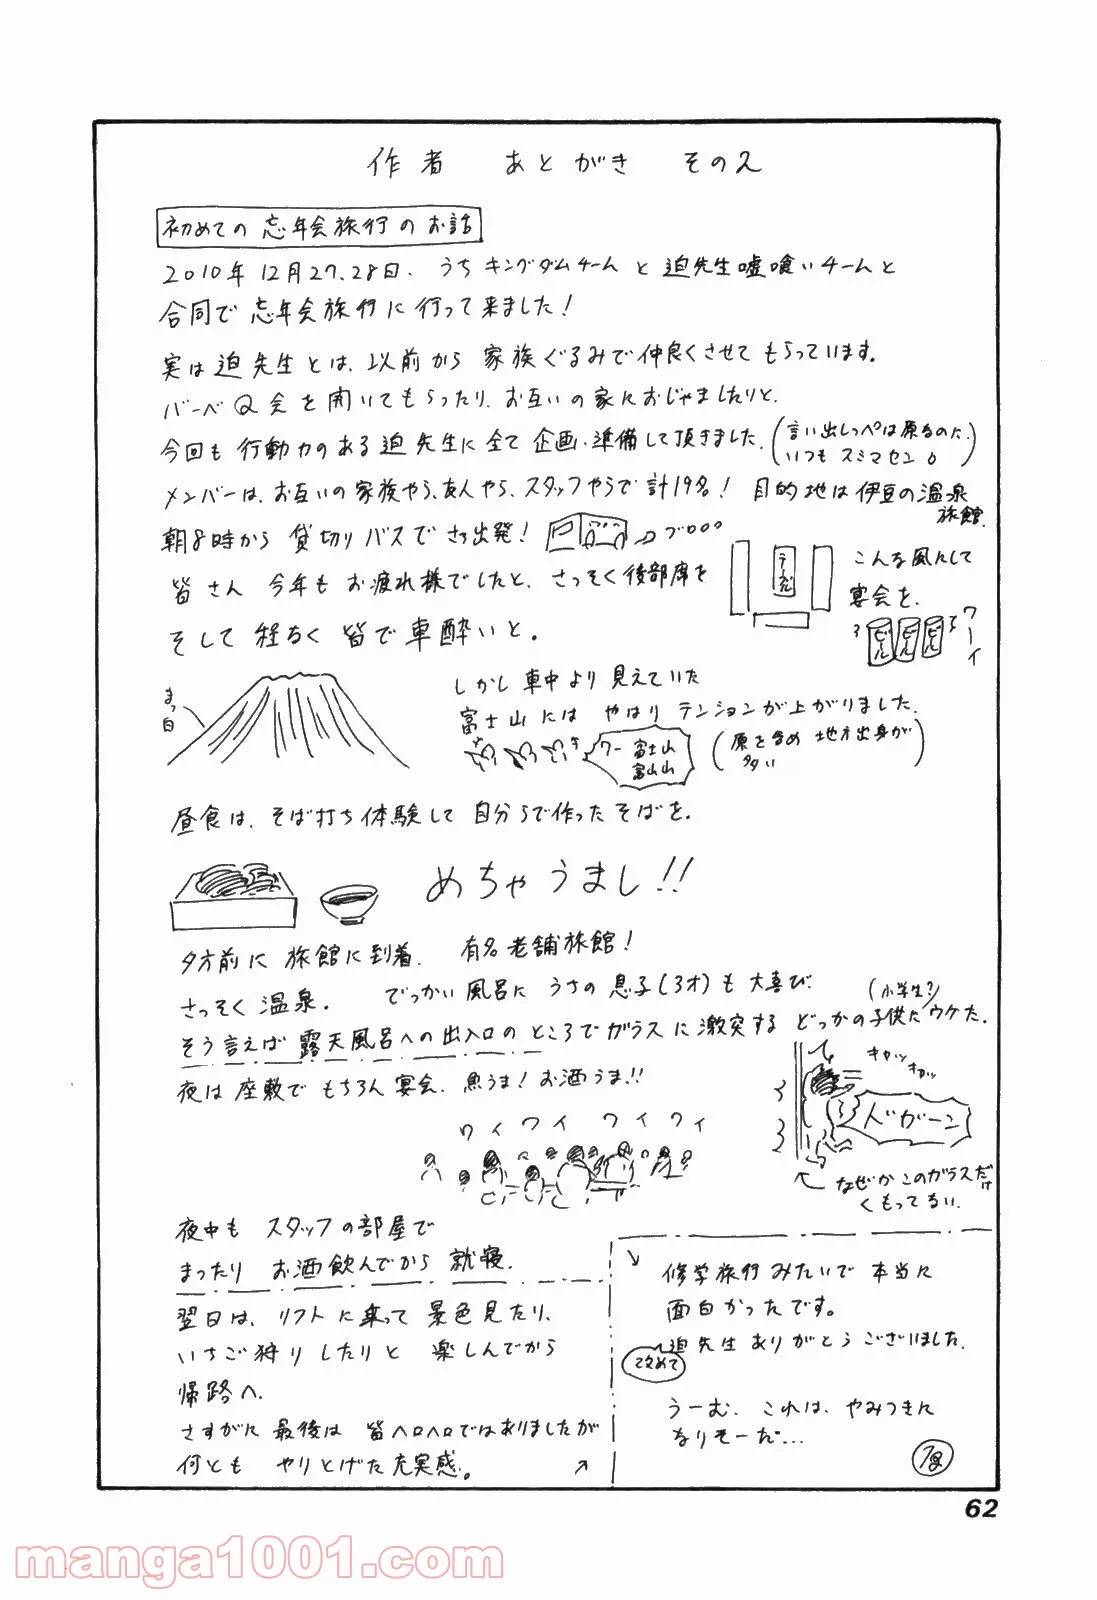 作者 あとがき その2
初めての忘年会旅行のお話
2010年12月27.28日、うちキングダムチームと迫先生嘘喰いチームと
合同で忘年会旅行に行って来ました!
実は迫先生とは、以前から家族ぐるみで仲良くさせてもらっています。
バーベQ会を開いてもらったり、お互いの家におじゃましたりと、
今回も行動力のある迫先生に全て企画・準備して頂きました。
(言い出しっぺは原なのに、
いつもスミマセン)
メンバーは、お互いの家族やら、友人やら、スタッフやらで計19名! 目的地は伊豆の温泉
旅館。
朝8時から貸切りバスでさぁ出発!
ブロロロ
皆さん 今年もお疲れ様でしたと、さっそく後部席を
テーブル
こんな風にして
宴会を、
ビール ビール ビール
ワーイ
そして程なく皆で車酔いと。
まっ白
しかし車中より見えていた
富士山にはやはりテンションが上がりました。
ワー富士山
富山山
(原を含め地方出身が
多い)
昼食は、そば打ち体験して自分らで作ったそばを。
めちゃうまし!!
夕方前に旅館に到着、有名老舗旅館!
さっそく温泉。 でっかい風呂にうちの息子(3才)も大喜び。
そう言えば露天風呂への出入口のところでガラスに激突するどっかの子供にウケた。
(小学生?)
キャッ キャッ
ドガーン
なぜかこのガラスだけ
くもってない。
夜は座敷でもちろん宴会、魚うま!お酒うま!!
ワイ ワイ ワイ ワイ
夜中もスタッフの部屋で
まったりお酒飲んでから就寝。
翌日は、リフトに乗って景色見たり、
いちご狩りしたりと楽しんでから
帰路へ。
さすがに最後は皆ヘロヘロではありましたが
何ともやりとげた充実感。
修学旅行みたいで本当に
面白かったです。
改めて
迫先生ありがとうございました。
うーむ、これは、やみつきに
なりそーだ…
原
62
manga1001.com